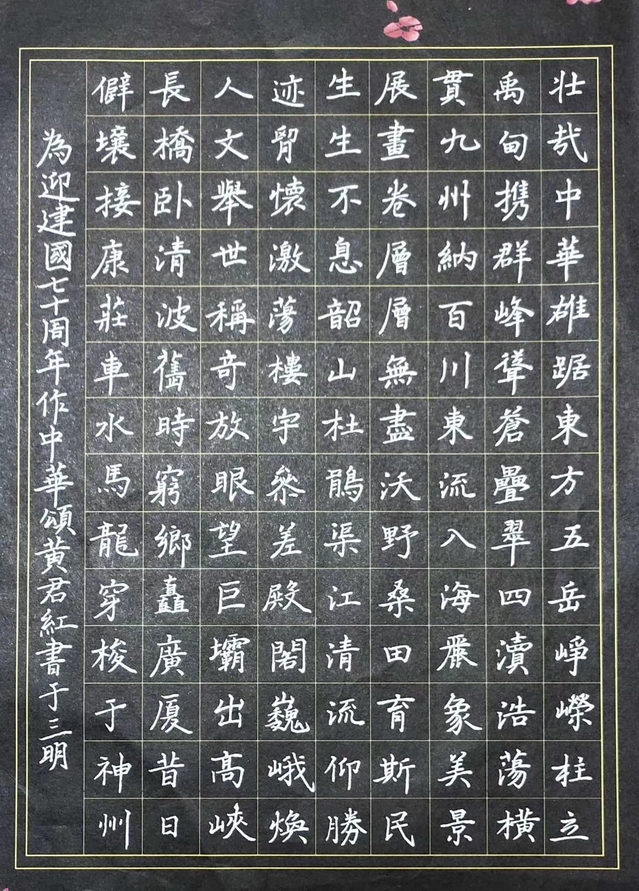 壮哉中華雄踞東方五岳崢嶸柱立
禹甸携群峰聳蒼疊翠四瀆浩蕩横
貫九州納百川東流入海麗象美景
展畫卷層層無盡沃野桑田育斯民
生生不息韶山杜鵑渠江清流仰勝
迹胷懷激蕩樓宇參差殿閣巍峨焕
人文舉世稱奇放眼望巨壩出高峽
長橋卧清波舊時窮鄉矗廣厦昔日
僻壤接康莊車水馬龍穿梭于神州
為迎建國七十周年作中華頌黄君紅書于三明